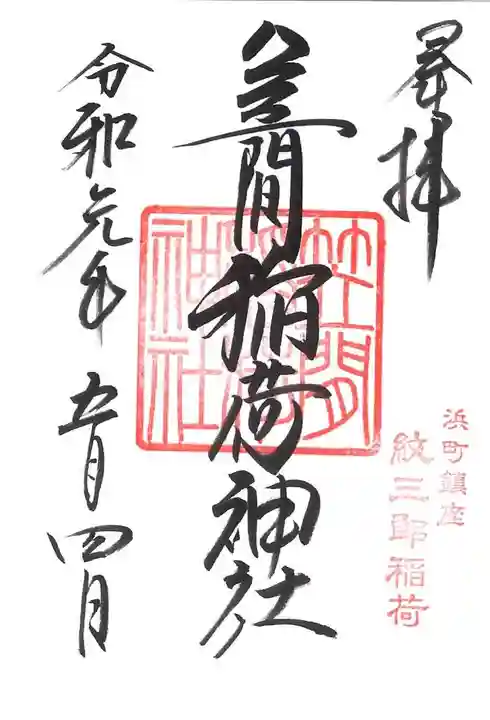 奉拝
浜町鎮座
紋三郎稲荷
笠間稲荷神社
笠間
稲荷
神社
令和元年 五月四日